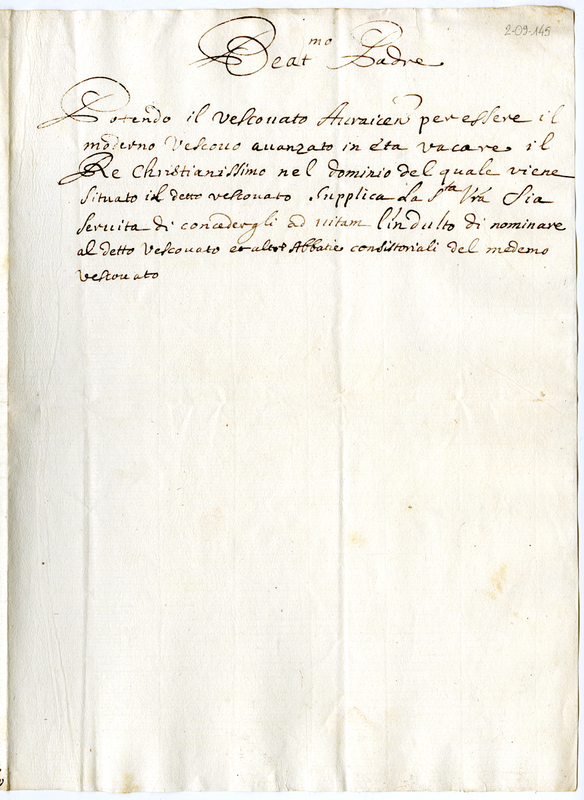 2-09-145
Beat.mo Padre
Potendo il Vescouato Auraicen per essere il
moderno Vescouo auanzato in età vacare il
Re Christianissimo nel dominio del quale viene
situato il detto vescouato supplica la S.ta Vra sia
seruita di concedergli ad uitam l'indulto di nominare
al detto Vescouato et altre Abbatie consistoriali del medemo
vescouato